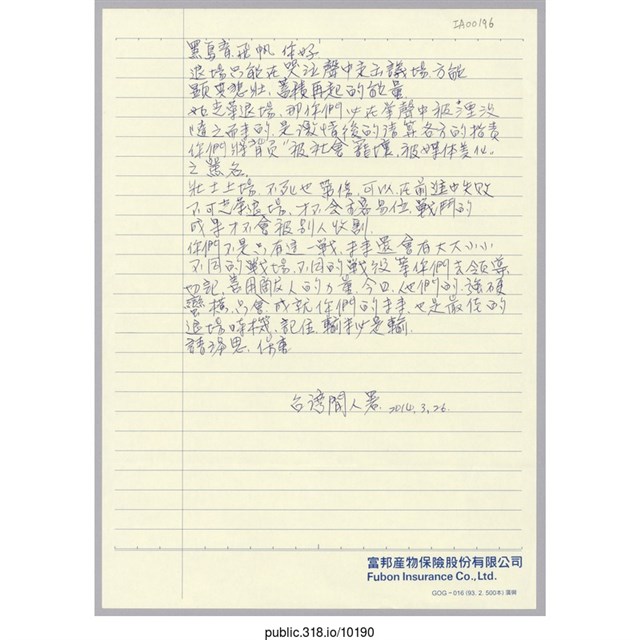 IA00196
黑島青、飛帆 你好
退場只能在哭泣聲中走出議場,方能
顯其悲壯,蓄積再起的能量
如光榮退場,那你們必在掌聲中被淹沒
隨之而來的,是激情後的清算各方的指責
你們將背負"被社會寵壞,被媒體美化"
之罵名,
壯士上場,不死也第傷,可以在前進中失敗
不可光榮退場,才不會主客易位,戰鬥的
成果才不會被別人收割
你們不是只有這一戰,未來還會有大大小小
不同的戰場,不同的戰役等你們去領導
切記,善用敵人的力量,今日他們的強硬
蠻橫,只會成就你們的未來,也是最佳的
退場時機,記住輸未必是輸,
請深思、保重
台灣閒人署 2014.3.26.
富邦產物保險股份有限公司
Fubon Insurance Co.,Ltd.
GOG-016 (93. 2. 500本) 薰興
public.318.io/10190